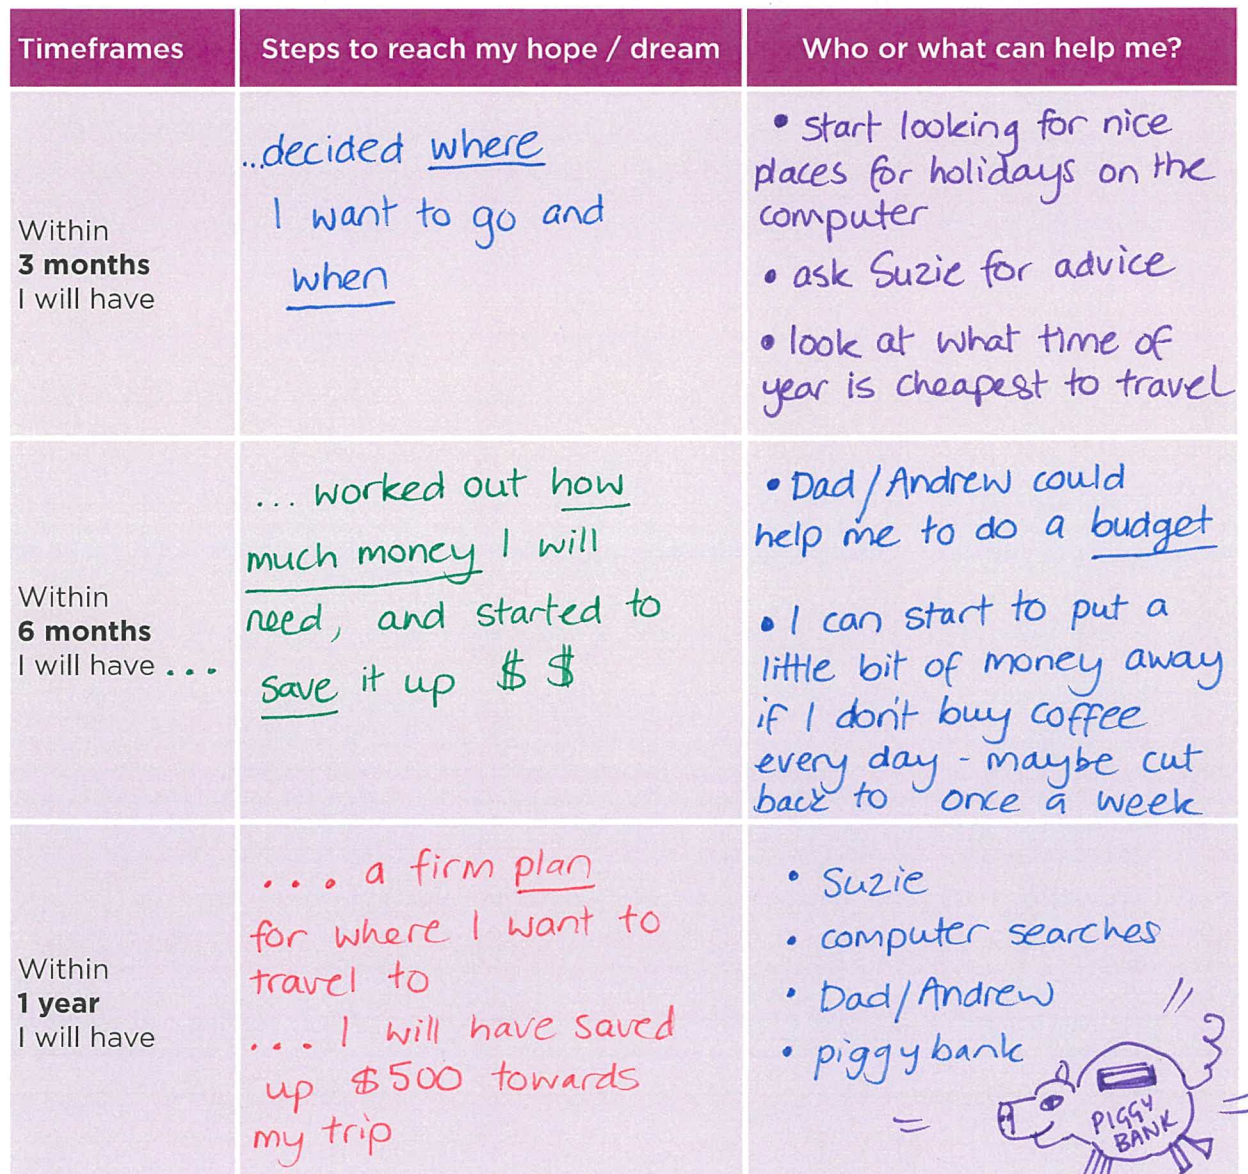 Timeframes
Steps to reach my hope / dream
Who or what can help me?
Within
3 months
I will have
...decided where
I want to go and
when
• Start looking for nice
places for holidays on the
computer
• ask Suzie for advice
• look at what time of
year is cheapest to travel
Within
6 months
I will have ...
... worked out how
much money I will
need, and started to
save it up $ $
• Dad/Andrew could
help me to do a budget
• I can start to put a
little bit of money away
if I don't buy coffee
every day - maybe cut
back to once a week
Within
1 year
I will have
.... a firm plan
for where I want to
travel to
.... I will have saved
up $500 towards
my trip
• Suzie
• computer searches
• Dad/Andrew
• piggy bank
PIGGY
BANK